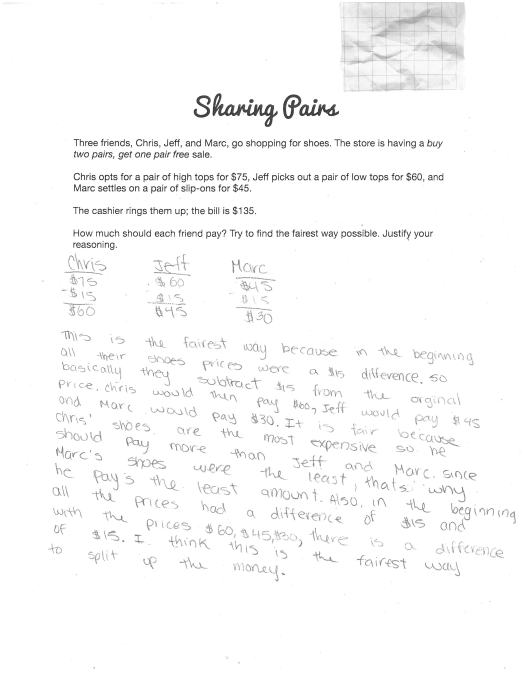 Sharing Pairs
Three friends, Chris, Jeff, and Marc, go shopping for shoes. The store is having a buy
two pairs, get one pair free sale.
Chris opts for a pair of high tops for $75, Jeff picks out a pair of low tops for $60, and
Marc settles on a pair of slip-ons for $45.
The cashier rings them up; the bill is $135.
How much should each friend pay? Try to find the fairest way possible. Justify your
reasoning.
Chris Jeff Marc
$75 $60 $45
-$15 -$15 -$15
$60 $45 $30
This is the fairest way because in the beginning
all their shoes prices were a $15 difference. so
basically they subtract $15 from the orginal
price. Chris would then pay $60, Jeff would pay $45
and Marc would pay $30. It is fair because
Chris' shoes are the most expensive so he
should pay more than Jeff and Marc. since
Marc's shoes were the least, thats why
he pay's the least amount. Also, in the beginning
all the prices had a difference of $15 and
with the prices $60, $45, $30, there is a difference
of $15. I think this is the fairest way
to split up the money.